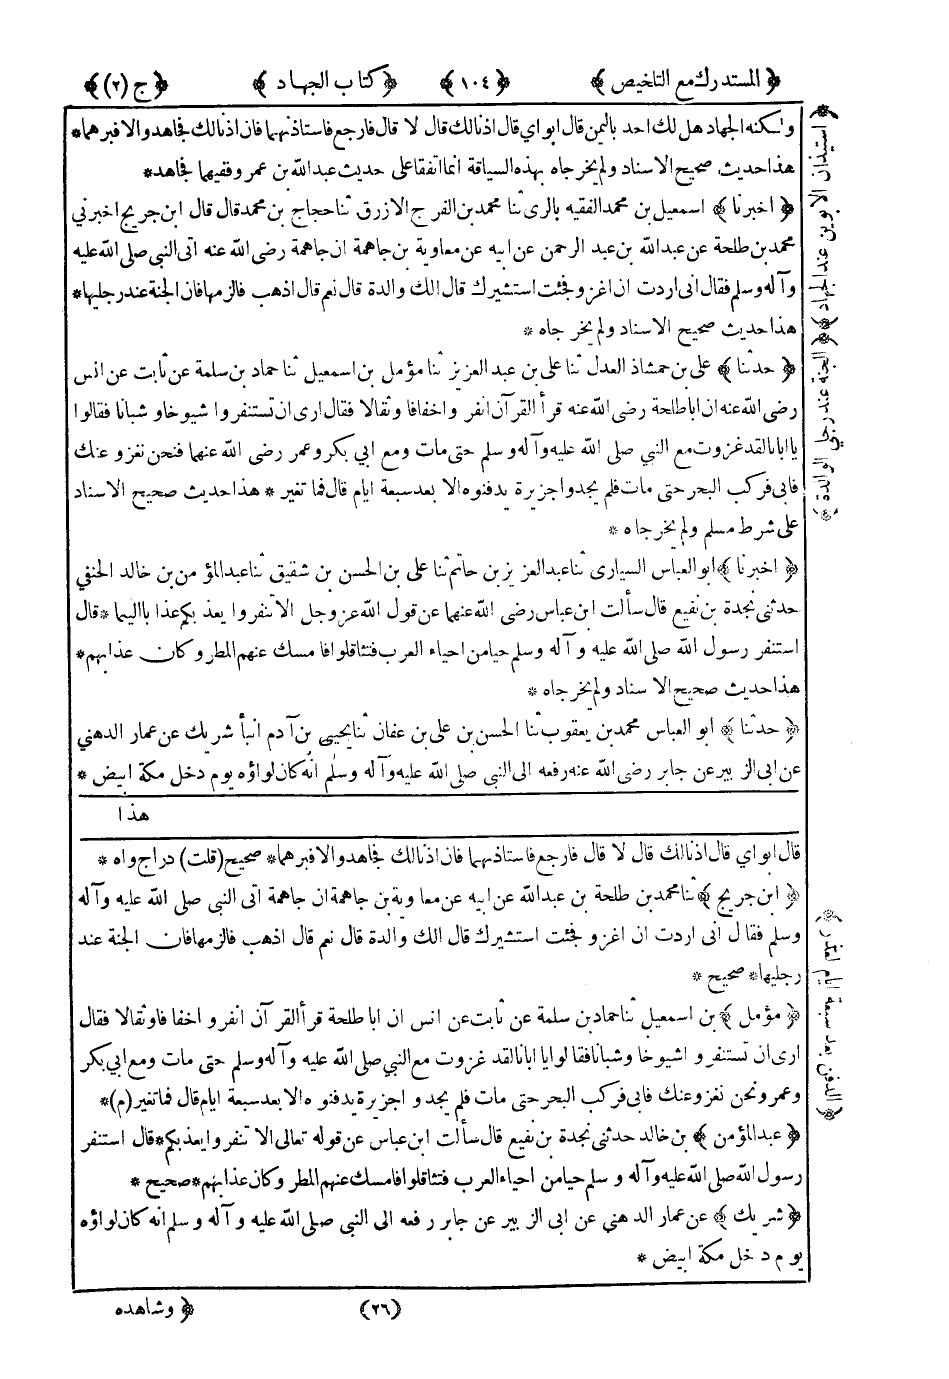 ﴿ المستدرك مع التلخيص ﴾ ﴿ ١٠٤ ﴾ ﴿ كتاب الجهاد ﴾ ﴿ ج (٢) ﴾
ولكنه الجهاد هل لك احد باليمن قال ابواي قال اذنالك قال لا قال فارجع فاستاذنهما فان اذنالك فجاهد والا فبرهما*
هذا حديث صحيح الاسناد ولم يخرجاه بهذه السياقة انما اتفقا على حديث عبد الله بن عمر وفيهما فجاهد*
﴿ اخبرنا ﴾ اسمعيل بن محمد الفقيه بالرى ثنا محمد بن الفرج الازرق ثنا حجاج بن محمد قال قال ابن جريج اخبرني
محمد بن طلحة عن عبد الله بن عبد الرحمن عن ابيه عن معاوية بن جاهمة ان جاهمة رضى الله عنه اتى النبي صلى الله عليه
وآله وسلم فقال انى اردت ان اغزو فجئت استشيرك قال الك والدة قال نعم قال اذهب فالزمها فان الجنة عند رجليها*
هذا حديث صحيح الاسناد ولم يخرجاه *
﴿ حدثنا ﴾ على بن حمشاذ العدل ثنا على بن عبد العزيز ثنا مؤمل بن اسمعيل ثنا حماد بن سلمة عن ثابت عن انس
رضى الله عنه ان اباطلحة رضى الله عنه قرأ القرآن انفر واخفافا وثقالا فقال ارى ان تستنفروا شيوخاو شبانا فقالوا
يا ابانا لقد غزوت مع النبي صلى الله عليه وآله وسلم حتى مات ومع ابي بكر وعمر رضى الله عنهما فنحن نغزو عنك
فابى فركب البحر حتى مات فلم يجدوا جزيرة يدفنوه الا بعد سبعة ايام قال فما تغير * هذا حديث صحيح الاسناد
على شرط مسلم ولم يخرجاه *
﴿ اخبرنا ﴾ ابو العباس السيارى ثنا عبد العزيز بن حاتم ثنا على بن الحسن بن شقيق ثنا عبد المؤمن بن خالد الحنفي
حدثنى نجدة بن نفيع قال سألت ابن عباس رضى الله عنهما عن قول الله عز وجل الا تنفروا يعذبكم عذابا اليما * قال
استنفر رسول الله صلى الله عليه وآله وسلم حيا من احياء العرب فتثاقلوا فامسك عنهم المطر وكان عذابهم*
هذا حديث صحيح الاسناد ولم يخرجاه *
﴿ حدثنا ﴾ ابو العباس محمد بن يعقوب ثنا الحسن بن على بن عفان ثنا يحيى بن آدم انبأ شريك عن عمار الدهني
عن ابى الزبير عن جابر رضى الله عنه رفعه الى النبي صلى الله عليه وآله وسلم انه كان لواؤه يوم دخل مكة ابيض *
هذا
قال ابواي قال اذنالك قال لا قال فارجع فاستاذنهما فان اذنالك فجاهد والا فبرهما* صحيح (قلت) دراج واه *
﴿ ابن جريج ﴾ ثنا محمد بن طلحة بن عبد الله عن ابيه عن معاوية بن جاهمة ان جاهمة اتى النبي صلى الله عليه وآله
وسلم فقال انى اردت ان اغزو فجئت استشيرك قال الك والدة قال نعم قال اذهب فالزمها فان الجنة عند
رجليها* صحيح *
﴿ مؤمل ﴾ بن اسمعيل ثنا حماد بن سلمة عن ثابت عن انس ان اباطلحة قرأ القرآن انفرو اخفافا وثقالا فقال
ارى ان تستنفرو اشيوخا وشبانا فقالوا يا ابانا لقد غزوت مع النبي صلى الله عليه وآله وسلم حتى مات ومع ابي بكر
وعمر ونحن نغزو عنك فابى فركب البحر حتى مات فلم يجدوا جزيرة يدفنوه الا بعد سبعة ايام قال فما تغير (م)*
﴿ عبد المؤمن ﴾ بن خالد حدثنى نجدة بن نفيع قال سألت ابن عباس عن قوله تعالى الا تنفروا يعذبكم* قال استنفر
رسول الله صلى الله عليه وآله وسلم حيا من احياء العرب فتثاقلوا فامسك عنهم المطر وكان عذابهم* صحيح *
﴿ شريك ﴾ عن عمار الدهني عن ابى الزبير عن جابر رفعه الى النبي صلى الله عليه وآله وسلم انه كان لواؤه
يوم دخل مكة ابيض *
﴿ استيذان الابوين عند الجهاد ﴾ ﴿ الجنة عند رجلي الوالدة ﴾
﴿ الدفن بعد سبعة ايام لعذر ﴾
(٢٦)
﴿ وشاهده